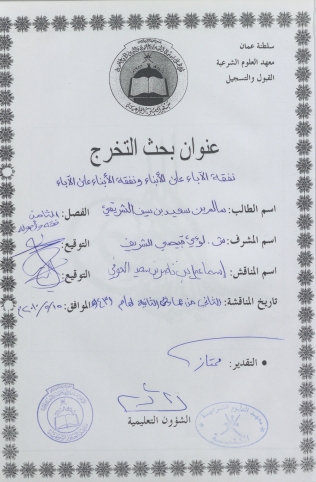 سلطنة عمان
معهد العلوم الشرعية
القبول والتسجيل
عنوان بحث التخرج
نفقة الآباء على الأبناء ونفقة الأبناء على الآباء
اسم الطالب: سالم بن سعيد بن سيف الشريقي الفصل: الثامن
اسم المشرف: لؤي قيصي الشريف التوقيع:
اسم المناقش: إسماعيل بن ناصر بن سعيد العوفي التوقيع:
تاريخ المناقشة: الثاني من جمادى الثانية لعام الموافق:
التقدير: ممتاز
الشؤون التعليمية